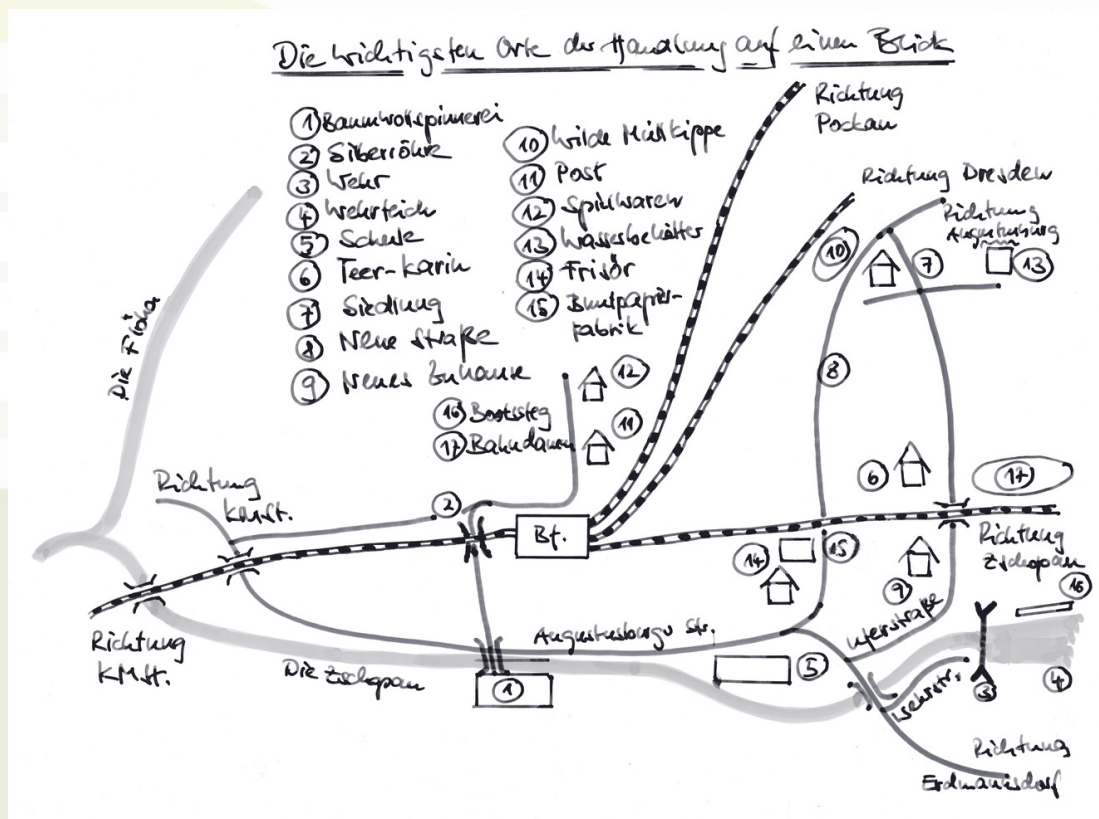 Die wichtigsten Orte der Handlung auf einen Blick
① Baumwollspinnerei
② Silberröhre
③ Wehr
④ Wehrteich
⑤ Schule
⑥ Teer-Karin
⑦ Siedlung
⑧ Neue Straße
⑨ Neues Zuhause
⑩ Wilde Müllkippe
⑪ Post
⑫ Spielwaren
⑬ Wasserbehälter
⑭ Frisör
⑮ Buntpapier-
fabrik
⑯ Bootssteg
⑰ Bahndamm
Richtung
Pockau
Richtung Dresden
Richtung
Augustusburg
⑩
⑦
⑬
Die Flöha
⑧
⑫
⑪
Richtung
KMSt.
②
Bf.
⑥
⑰
Richtung
Zschopau
⑭
⑮
⑨
⑯
Richtung
KMSt.
Augustusburger Str.
Uferstraße
Die Zschopau
①
⑤
Wehrstr.
③
④
Richtung
Erdmannsdorf